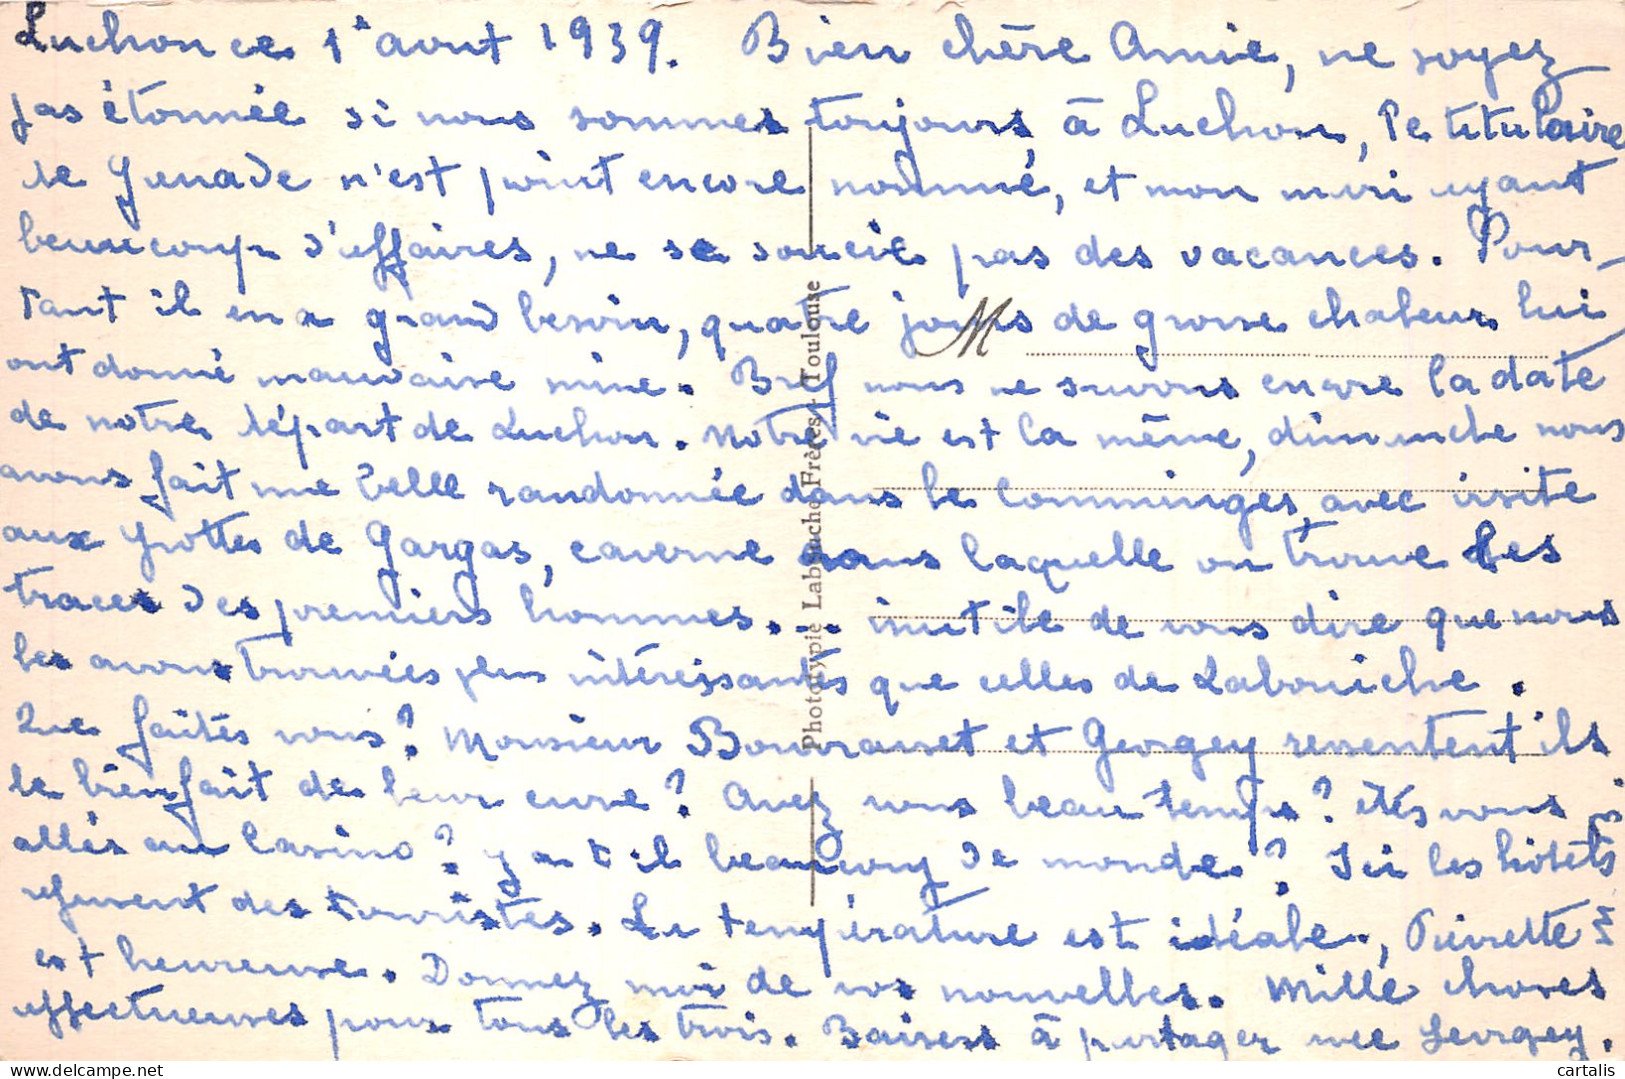 Luchon ce 1er aout 1939. Bien chère Amie, ne soyez
pas étonnée si nous sommes toujours à Luchon, le titulaire
de Grenade n'est point encore nommé, et mon mari ayant
beaucoup d'affaires, ne se soucie pas des vacances. Pour-
tant il en a grand besoin, quatre jours de grosse chaleur lui
ont donné mauvaise mine. Bref nous ne savons encore la date
de notre départ de Luchon. Notre vie est la même, dimanche nous
avons fait une belle randonnée dans le Comminges, avec visite
aux grottes de Gargas, caverne dans laquelle on trouve les
traces des premiers hommes... inutile de vous dire que nous
les avons trouvées plus intéressantes que celles de Labouiche.
Que faites vous? Monsieur et Georgey ressentent ils
le bienfait de leur cure? Avez vous beau temps? êtes vous
allés au Casino? y a t il beaucoup de monde? Ici les hôtels
refusent des touristes. La température est idéale, Pierrette
est heureuse. Donnez moi de vos nouvelles. Mille choses
affectueuses pour tous les trois. Baisers à partager avec Georgey.
M
Phototypie Labouche Frères - Toulouse
cartalis